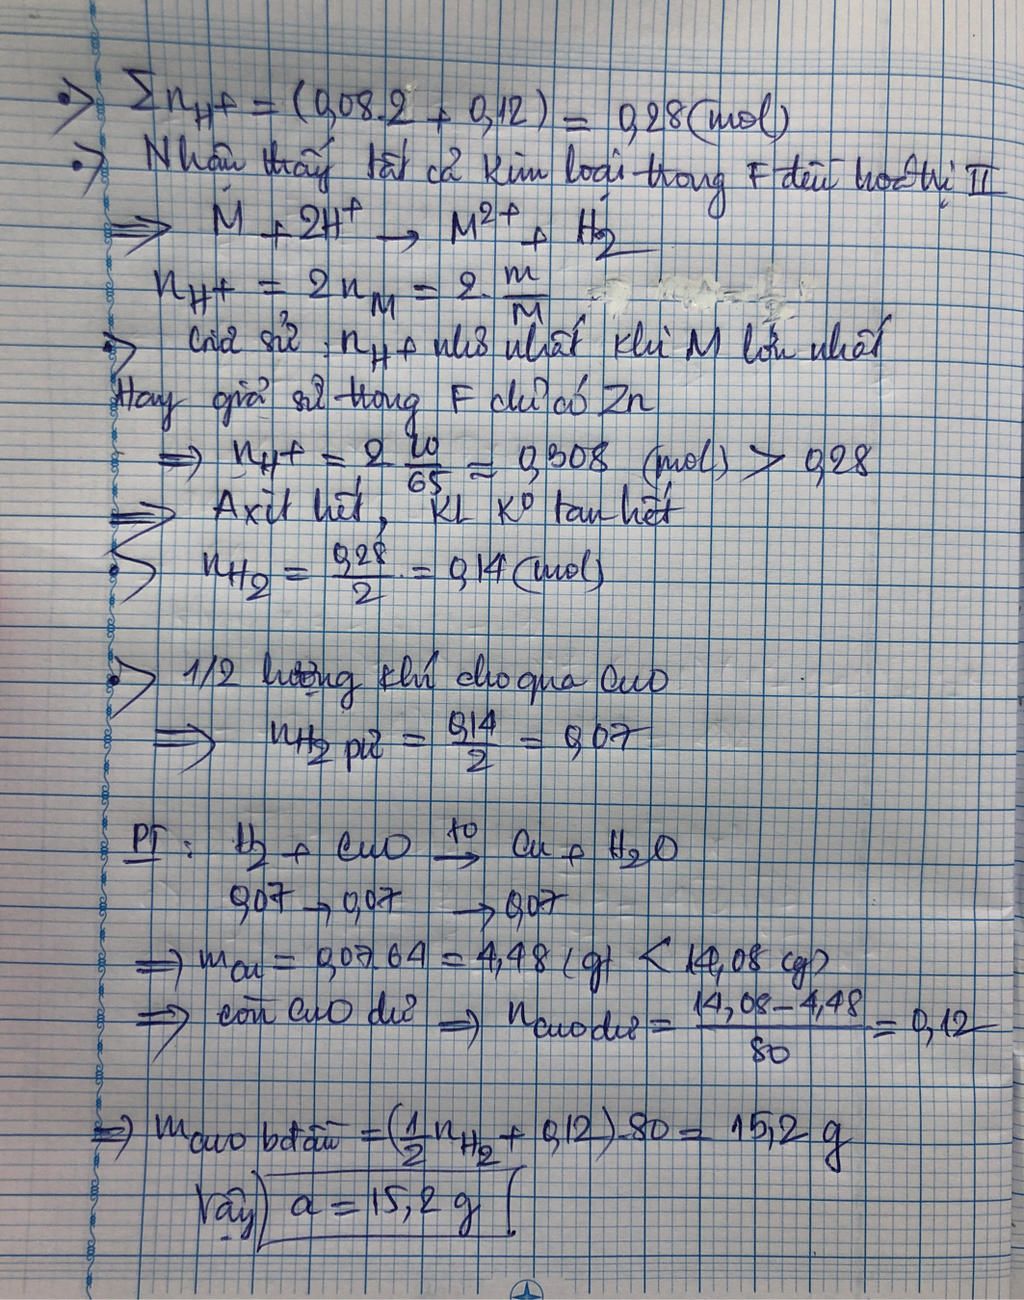 •> Σn_H+ = (0,08.2 + 0,12) = 0,28 (mol)
•> Nhận thấy tất cả kim loại trong F đều hoá trị II
=> M + 2H⁺ → M²⁺ + H₂
n_H+ = 2n_M = 2. m/M
•> Giả sử : n_H+ nhỏ nhất khi M lớn nhất
Hay giả sử trong F chỉ có Zn
=> n_H+ = 2 10/65 = 0,308 (mol) > 0,28
=> Axit hết, KL Ko tan hết
•> n_H₂ = 0,28/2 = 0,14 (mol)
•> 1/2 lượng khí cho qua CuO
=> n_H₂ pứ = 0,14/2 = 0,07
PT : H₂ + CuO →(t⁰) Cu + H₂O
0,07 → 0,07 → 0,07
=> m_Cu = 0,07.64 = 4,48 (g) < 14,08 (g)
=> còn CuO dư => n_CuO dư = (14,08 – 4,48)/80 = 0,12
=> m_CuO bđầu = (1/2 n_H₂ + 0,12).80 = 15,2 g
Vậy a = 15,2 g